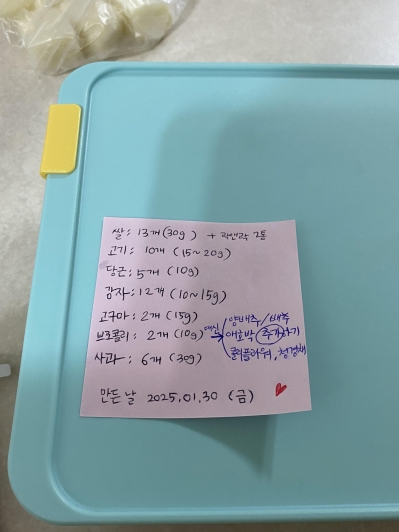 쌀: 13개(30g) + 락앤락 2통
고기: 10개 (15~20g)
당근: 5개 (10g)
감자: 12개 (10~15g)
고구마: 2개 (15g)
브로콜리: 2개 (10g) 대신 → 양배추/배추
애호박 추가하기
콜리플라워, 청경채
사과: 6개 (30g)
만든 날 2025.01.30 (금)